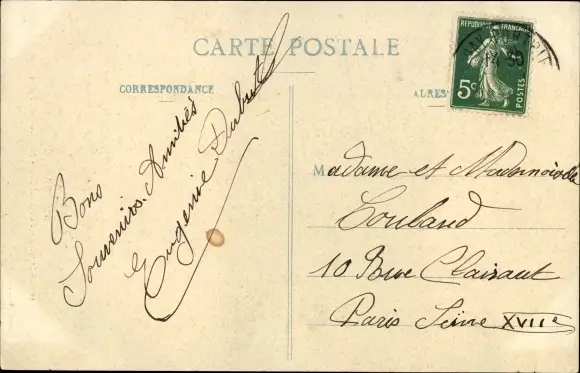 CARTE POSTALE
CORRESPONDANCE
Bons
Souvenirs. Amitiés
Eugénie
REPUBLIQUE FRANÇAISE
5c
POSTES
14-30
Madame et Mademoiselle
10 Rue Clairaut
Paris Seine XVIIe